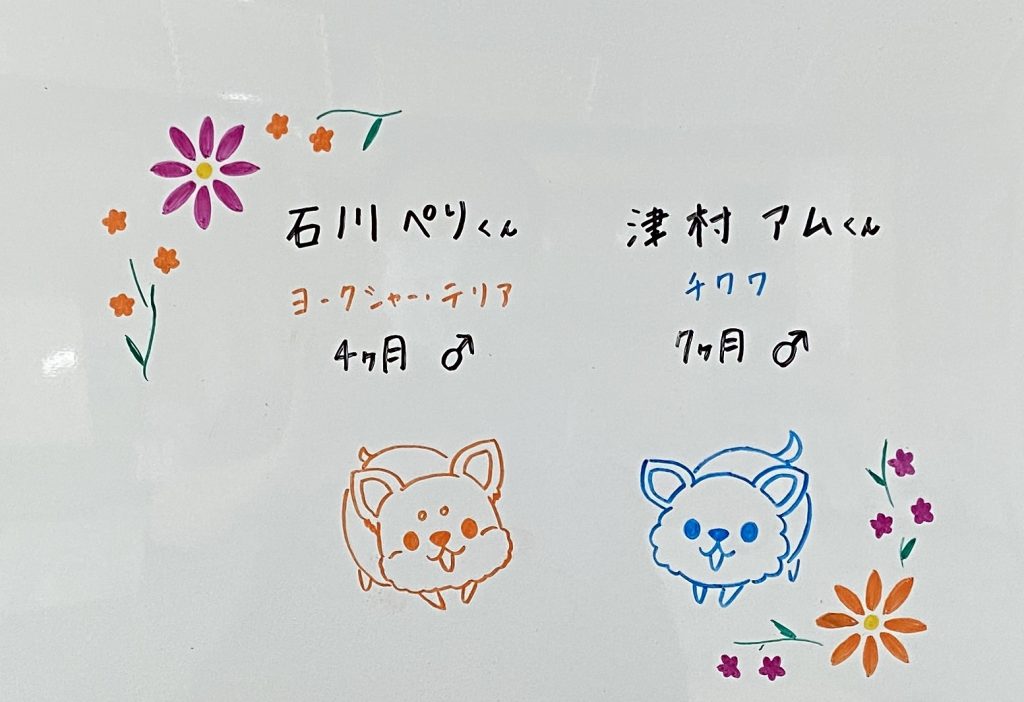 石川 ペリくん
ヨークシャー・テリア
4ヶ月 ♂
津村 アムくん
チワワ
7ヶ月 ♂